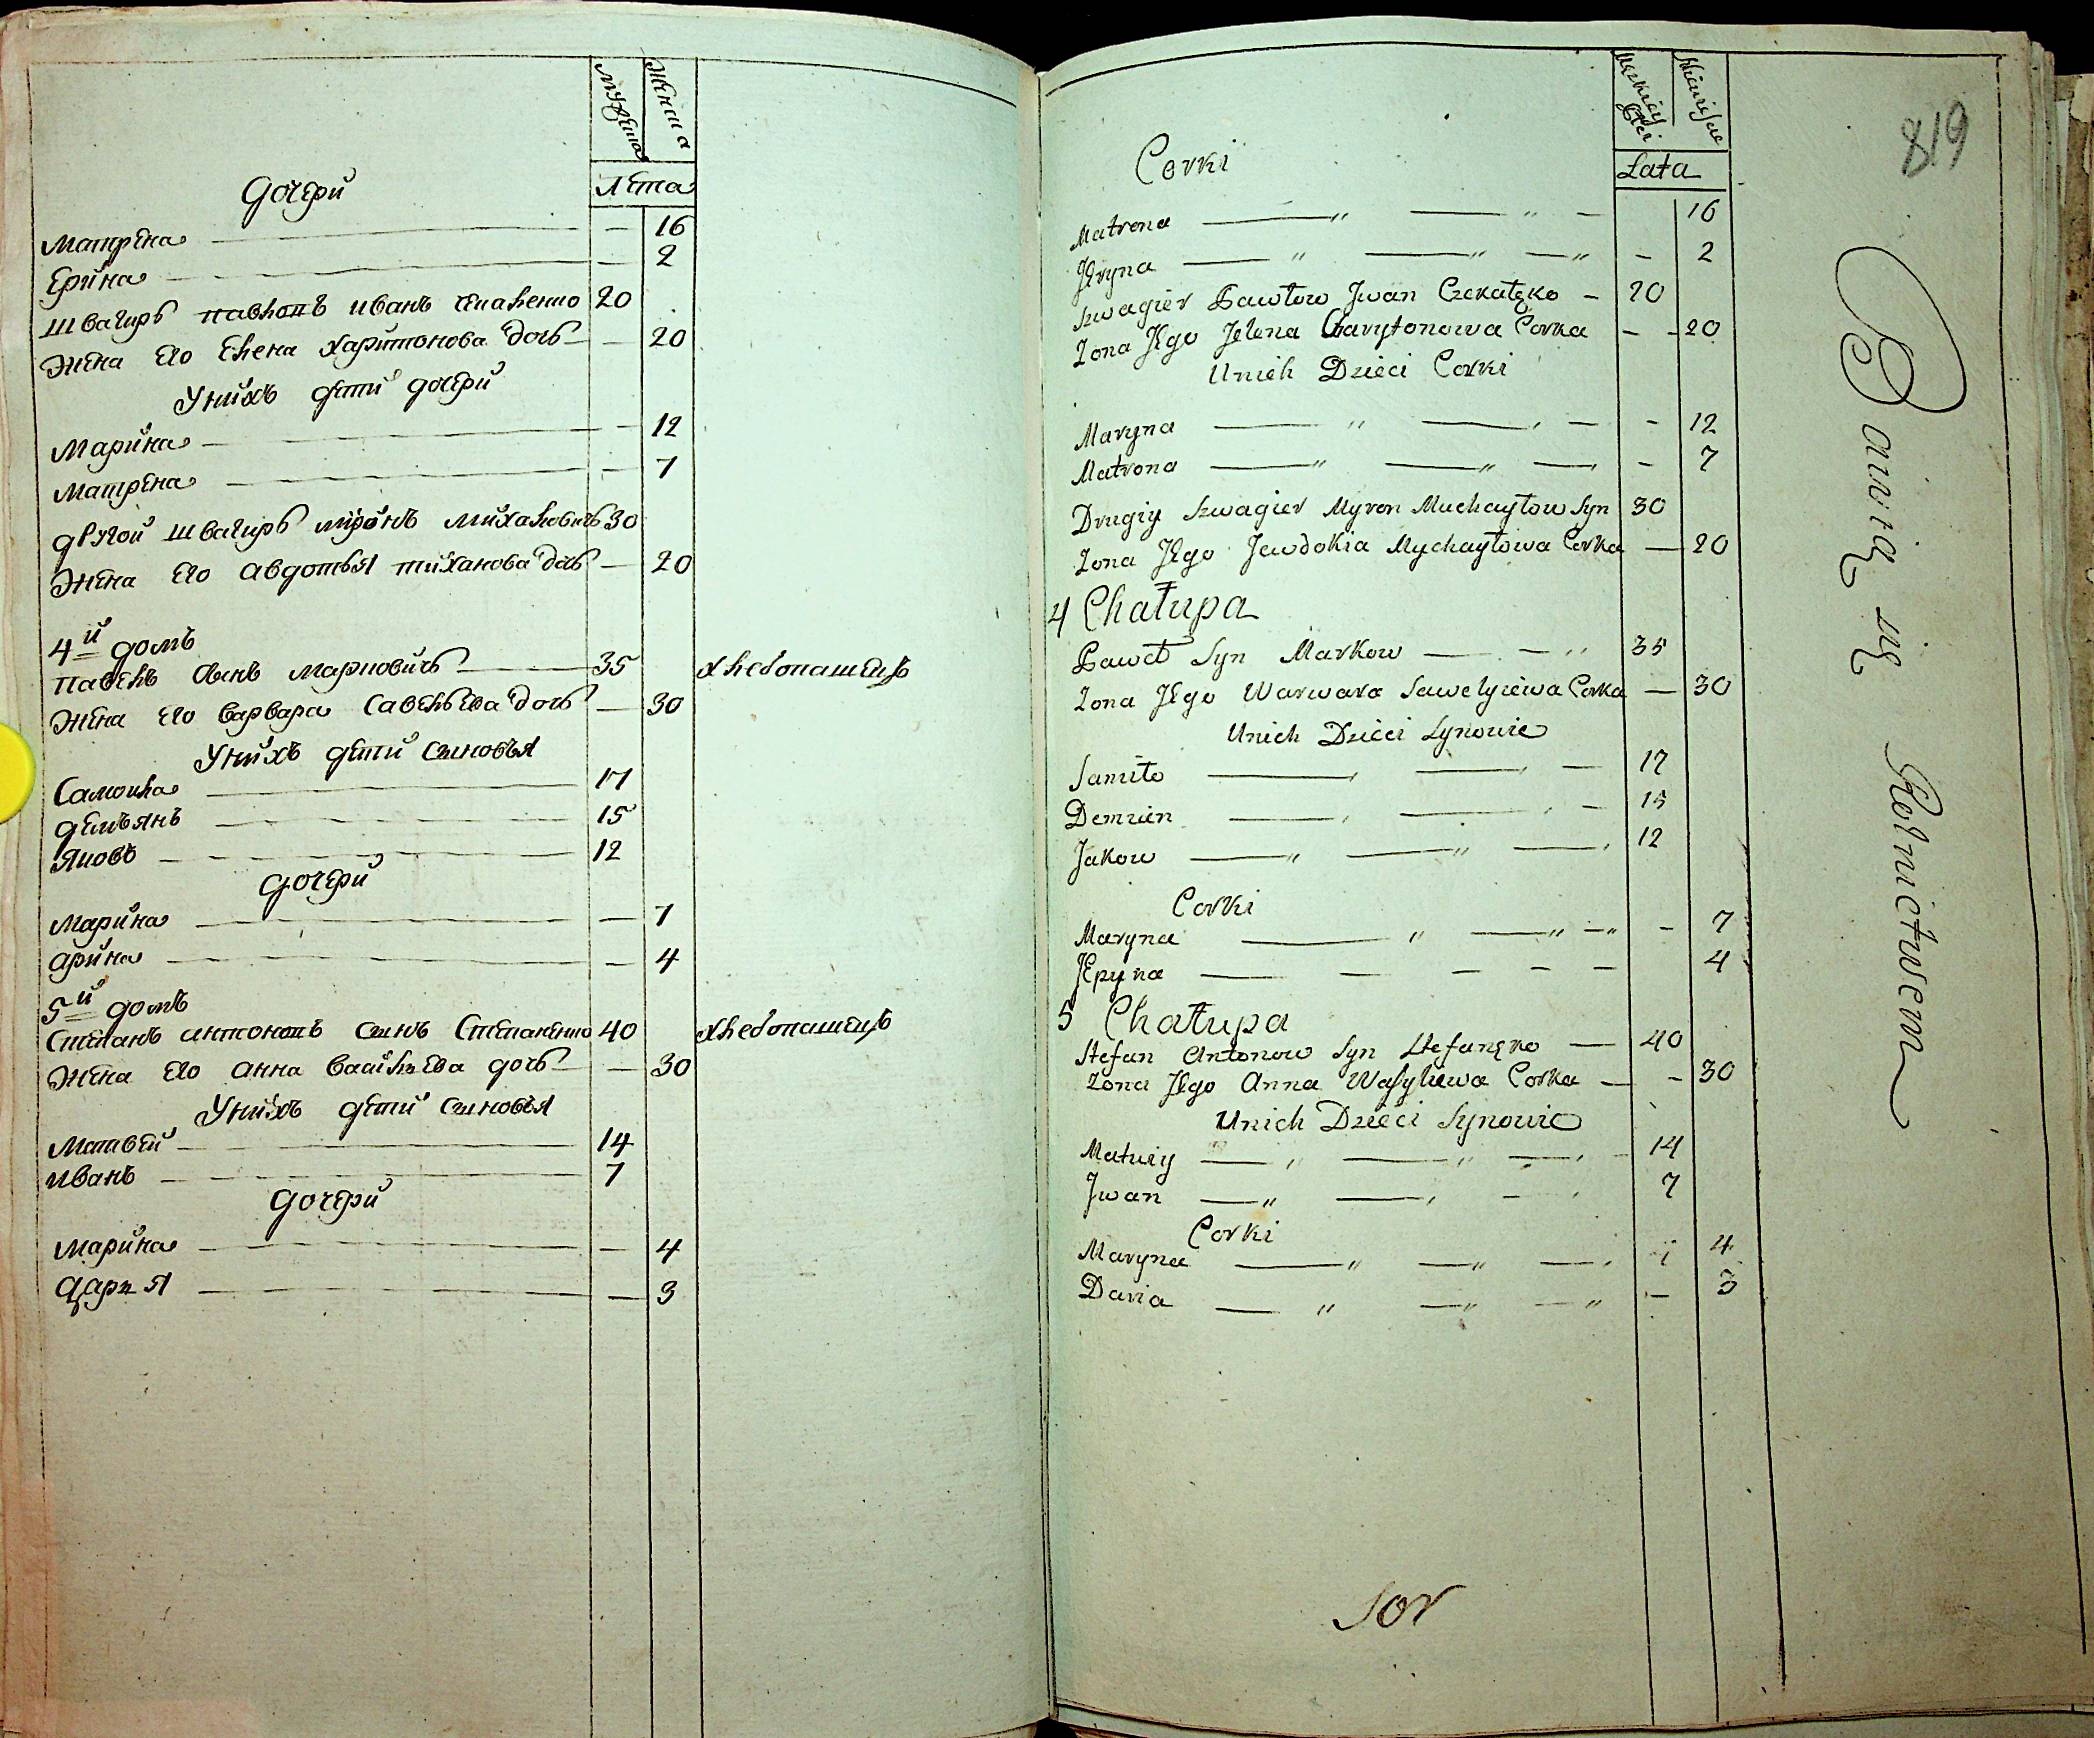 Женска
Лета
Дочери
Матрена — — 16
Ерина — — 2
Швагиръ Павловъ Иванъ 20
Жена его Елена Харитонова дочь — 20
У нихъ дети дочери
Марина — — 12
Матрена — — 7
другой швагиръ миронъ михаловичъ 30
Жена его авдотья тиханова дочь — 20
4й домъ
Павелъ сынъ марковичь — 35 хлебопашецъ
Жена его варвара савельева дочь — 30
У нихъ дети сыновья
Самойла — 17
демьянъ — 15
Яковъ — 12
дочери
Марина — — 7
арина — — 4
5й домъ
Степанъ антоновъ сынъ Степаненко 40 хлебопашецъ
Жена его анна васильева дочь — 30
У нихъ дети сыновья
Матвей — 14
иванъ — 7
дочери
Марина — — 4
Дарья — — 3
819
Lata
Corki
Matrona — 16
Jeryna — - 2
Szwagier Pawłow Jwan Czekałęko - 20
Zona Jego Jelena Charytonowa Corka - - 20
Unich Dzieci Corki
Maryna — - 12
Matrona — - 7
Drugiy Szwagier Myron Muchayłow Syn 30
Zona Jego Jewdokia Mychayłowa Corka — 20
4 Chałupa
Paweł Syn Markow — 35
Zona Jego Warwara Sawelyiewa Corka — 30
Unich Dzieci Synowie
Samiło — 17
Demian — 15
Jakow — 12
Corki
Maryna — - 7
Jepyna — 4
5 Chałupa
Stefan Antonow Syn Stefanęko — 40
Zona Jego Anna Wasyliewa Corka — - 30
Unich Dzieci Synowie
Matwiy — 14
Jwan — 7
Corki
Maryna — 4
Daria — - 3
Bawią się Rolnictwem
Sor